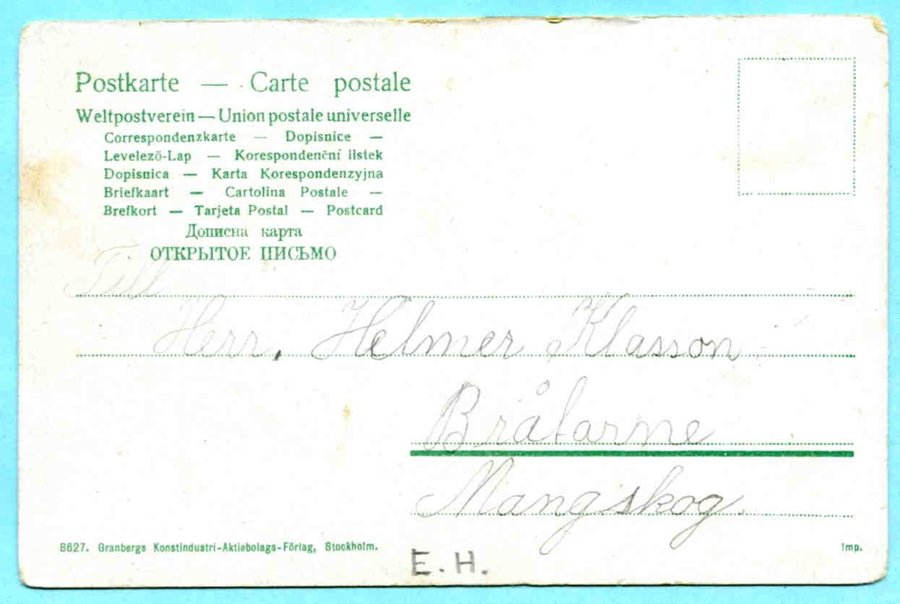 Postkarte — Carte postale
Weltpostverein — Union postale universelle
Correspondenzkarte — Dopisnice —
Levelezö-Lap — Korespondenční listek
Dopisnica — Karta Korespondenzyjna
Briefkaart — Cartolina Postale —
Brefkort — Tarjeta Postal — Postcard
Дописна карта
ОТКРЫТОЕ ПИСЬМО
Till
Herr. Helmer Klasson
Bråtarne
Mangskog.
8627. Granbergs Konstindustri-Aktiebolags-Förlag, Stockholm.
Imp.
E.H.